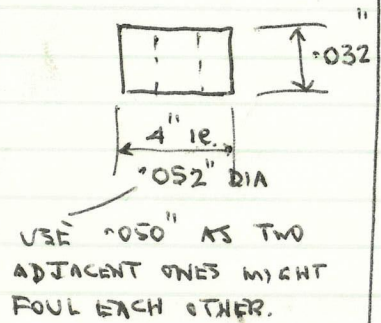 ·032"
4" ie.
·052" DIA
USE ·050" AS TWO
ADJACENT ONES MIGHT
FOUL EACH OTHER.